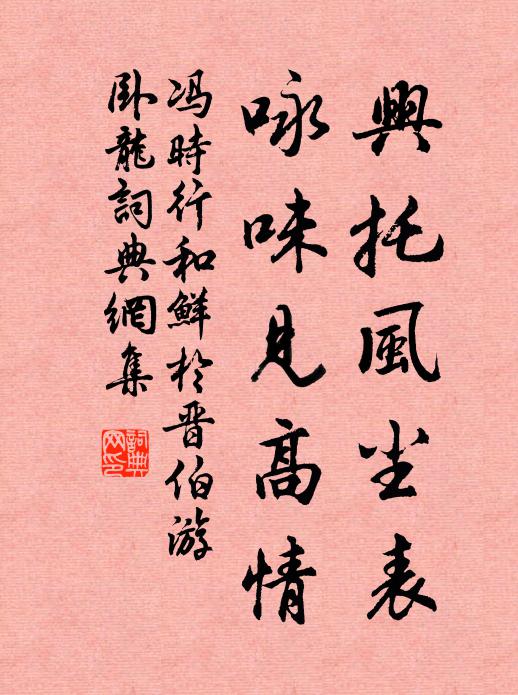 興托風尘表
咏味見高情
冯時行和鮮於晋伯游
卧龍詞典網集
詞典
网印